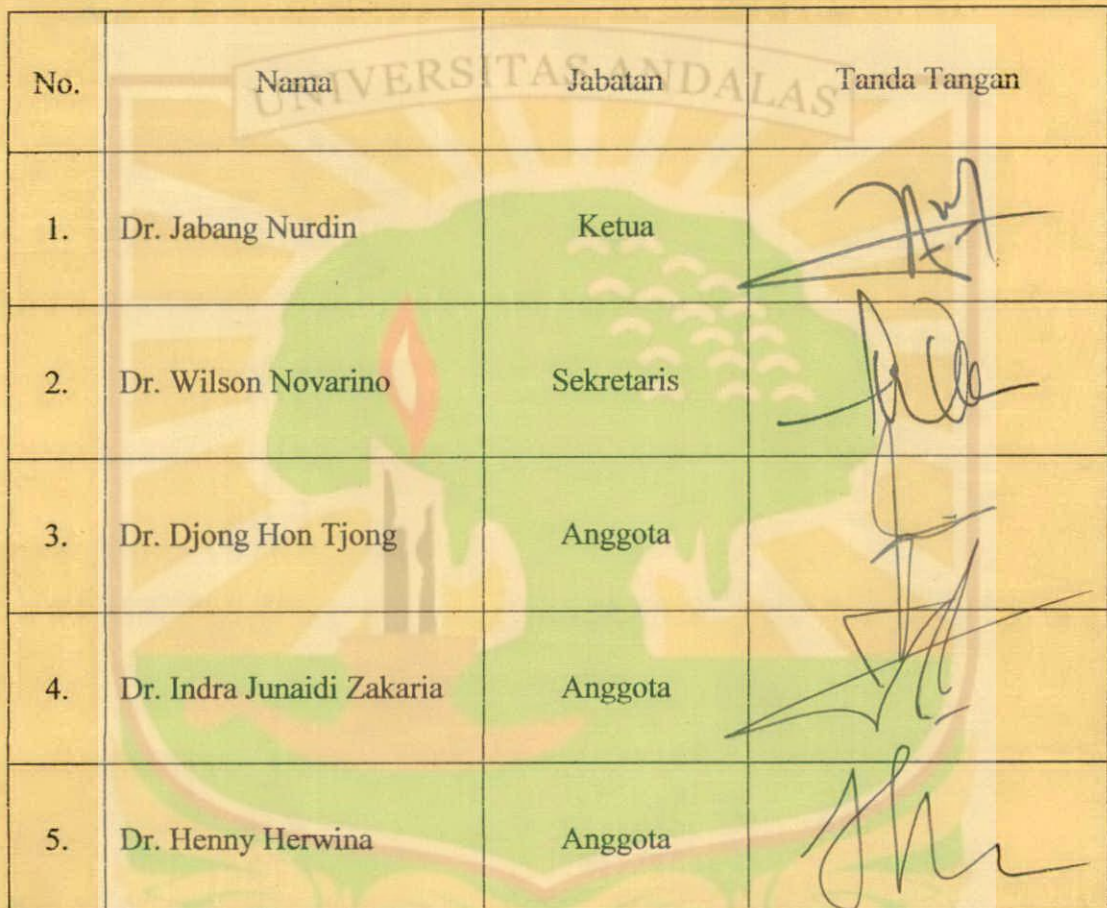 UNIVERSITAS ANDALAS
No. Nama Jabatan Tanda Tangan
1. Dr. Jabang Nurdin Ketua
2. Dr. Wilson Novarino Sekretaris
3. Dr. Djong Hon Tjong Anggota
4. Dr. Indra Junaidi Zakaria Anggota
5. Dr. Henny Herwina Anggota